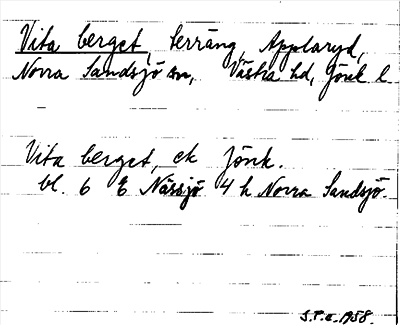 Vita berget, terräng, Applaryd,
Norra Sandsjö sn, Västra hd, Jönk l
Vita berget, ek Jönk.
bl. 6 E Nässjö 4 h Norra Sandsjö.
S.P.E. 1958.